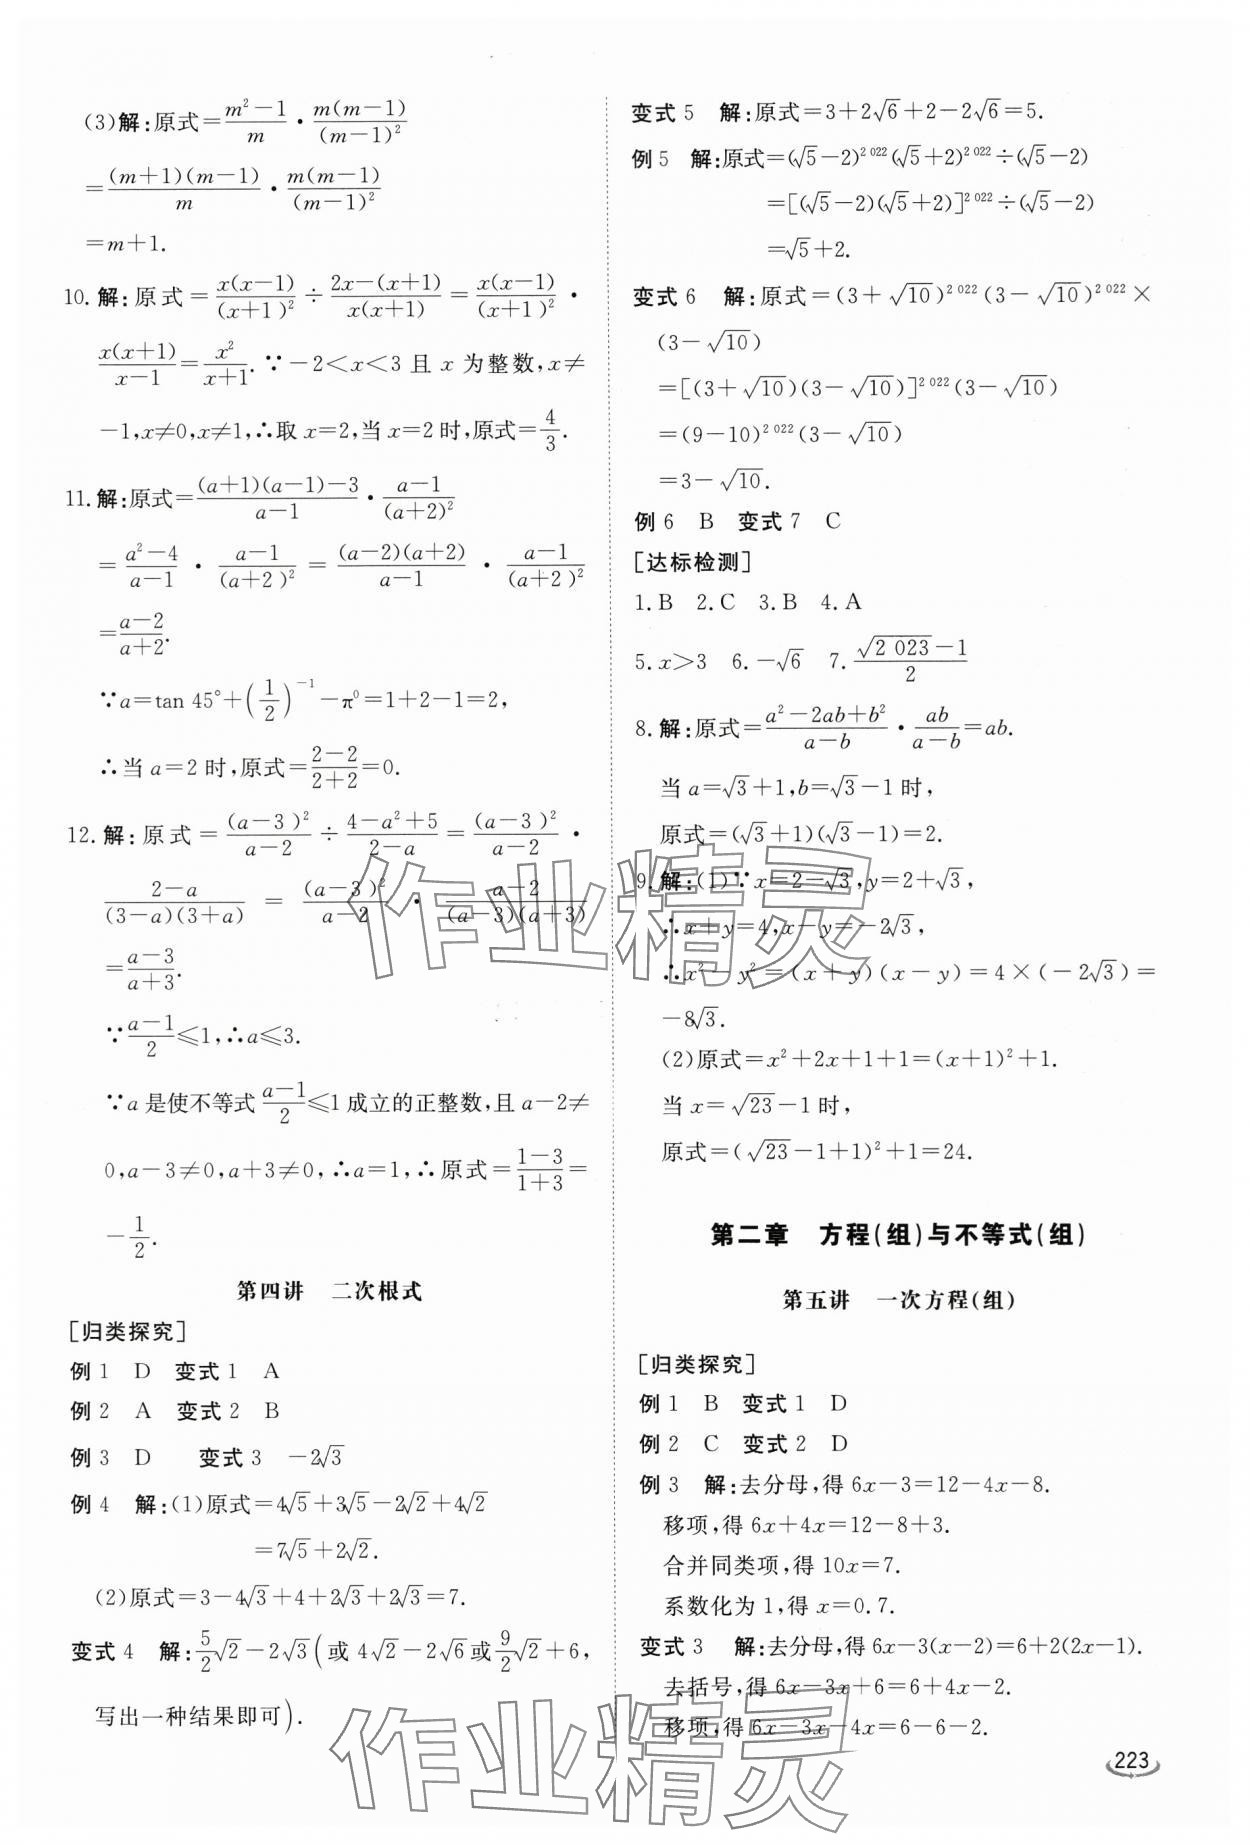 (3)解:原式=\frac{m²-1}{m}·\frac{m(m-1)}{(m-1)²}
=\frac{(m+1)(m-1)}{m}·\frac{m(m-1)}{(m-1)²}
=m+1.
10.解:原式=\frac{x(x-1)}{(x+1)²}÷\frac{2x-(x+1)}{x(x+1)}=\frac{x(x-1)}{(x+1)²}·
\frac{x(x+1)}{x-1}=\frac{x²}{x+1}.∵-2<x<3且x为整数,x≠
-1,x≠0,x≠1,∴取x=2,当x=2时,原式=\frac{4}{3}.
11.解:原式=\frac{(a+1)(a-1)-3}{a-1}·\frac{a-1}{(a+2)²}
=\frac{a²-4}{a-1}·\frac{a-1}{(a+2)²}=\frac{(a-2)(a+2)}{a-1}·\frac{a-1}{(a+2)²}
=\frac{a-2}{a+2}.
∵a=tan 45°+(\frac{1}{2})⁻¹-π⁰=1+2-1=2,
∴当a=2时,原式=\frac{2-2}{2+2}=0.
12.解:原式=\frac{(a-3)²}{a-2}÷\frac{4-a²+5}{2-a}=\frac{(a-3)²}{a-2}·
\frac{2-a}{(3-a)(3+a)}=\frac{(a-3)²}{a-2}·\frac{a-2}{(a-3)(a+3)}
=\frac{a-3}{a+3}.
∵\frac{a-1}{2}≤1,∴a≤3.
∵a是使不等式\frac{a-1}{2}≤1成立的正整数,且a-2≠
0,a-3≠0,a+3≠0,∴a=1,∴原式=\frac{1-3}{1+3}=
-\frac{1}{2}.
第四讲 二次根式
[归类探究]
例1 D 变式1 A
例2 A 变式2 B
例3 D 变式3 -2√3
例4 解:(1)原式=4√5+3√5-2√2+4√2
=7√5+2√2.
(2)原式=3-4√3+4+2√3+2√3=7.
变式4 解:\frac{5}{2}√2-2√3(或4√2-2√6或\frac{9}{2}√2+6,
写出一种结果即可).
变式5 解:原式=3+2√6+2-2√6=5.
例5 解:原式=(√5-2)^{2 022}(√5+2)^{2 022}÷(√5-2)
=[(√5-2)(√5+2)]^{2 022}÷(√5-2)
=√5+2.
变式6 解:原式=(3+√10)^{2 022}(3-√10)^{2 022}×
(3-√10)
=[(3+√10)(3-√10)]^{2 022}(3-√10)
=(9-10)^{2 022}(3-√10)
=3-√10.
例6 B 变式7 C
[达标检测]
1.B 2.C 3.B 4.A
5.x>3 6.-√6 7.\frac{√{2 023}-1}{2}
8.解:原式=\frac{a²-2ab+b²}{a-b}·\frac{ab}{a-b}=ab.
当a=√3+1,b=√3-1时,
原式=(√3+1)(√3-1)=2.
9.解:(1)∵x=2-√3,y=2+√3,
∴x+y=4,x-y=-2√3,
∴x²-y²=(x+y)(x-y)=4×(-2√3)=
-8√3.
(2)原式=x²+2x+1+1=(x+1)²+1.
当x=√23-1时,
原式=(√23-1+1)²+1=24.
第二章 方程(组)与不等式(组)
第五讲 一次方程(组)
[归类探究]
例1 B 变式1 D
例2 C 变式2 D
例3 解:去分母,得6x-3=12-4x-8.
移项,得6x+4x=12-8+3.
合并同类项,得10x=7.
系数化为1,得x=0.7.
变式3 解:去分母,得6x-3(x-2)=6+2(2x-1).
去括号,得6x-3x+6=6+4x-2.
移项,得6x-3x-4x=6-6-2.
223
作业精灵
作业精灵